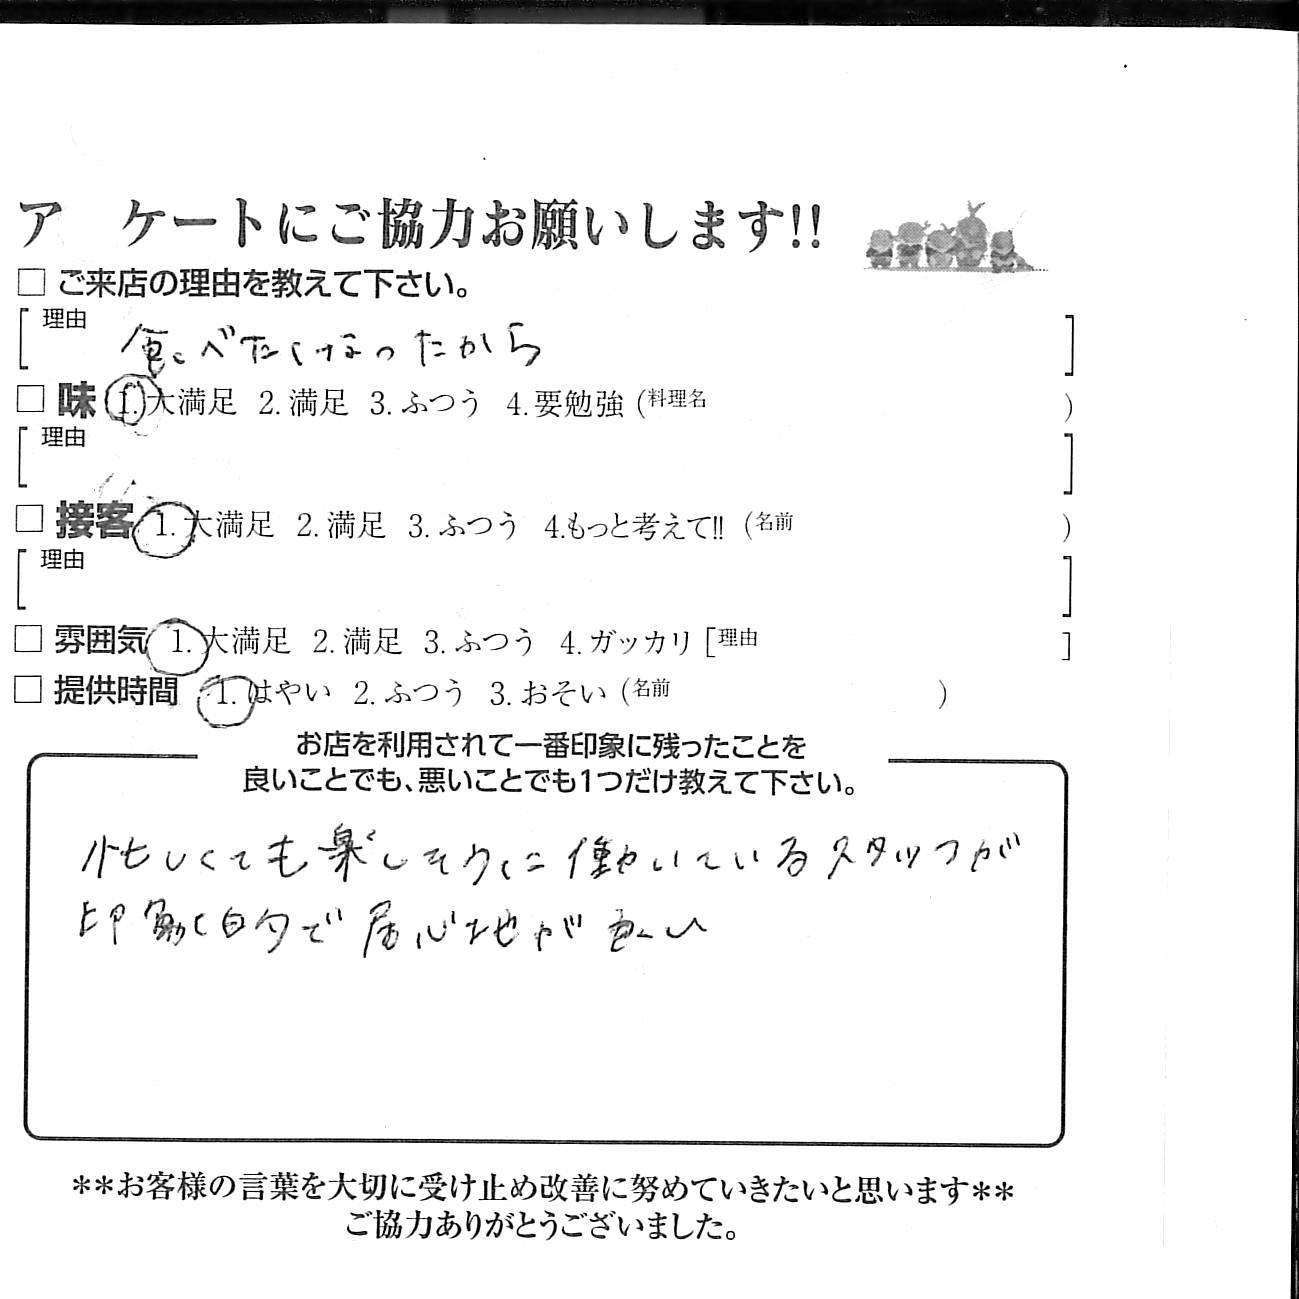 ア ケートにご協力お願いします!!
□ ご来店の理由を教えて下さい。
理由
食べたくなったから
□ 味 1.大満足 2.満足 3.ふつう 4.要勉強 (料理名 )
理由
□ 接客 1.大満足 2.満足 3.ふつう 4.もっと考えて!! (名前 )
理由
□ 雰囲気 1.大満足 2.満足 3.ふつう 4.ガッカリ [理由 ]
□ 提供時間 1.はやい 2.ふつう 3.おそい (名前 )
お店を利用されて一番印象に残ったことを
良いことでも、悪いことでも1つだけ教えて下さい。
忙しくても楽しそうに働いているスタッフが
印象的で居心地が良い
**お客様の言葉を大切に受け止め改善に努めていきたいと思います**
ご協力ありがとうございました。